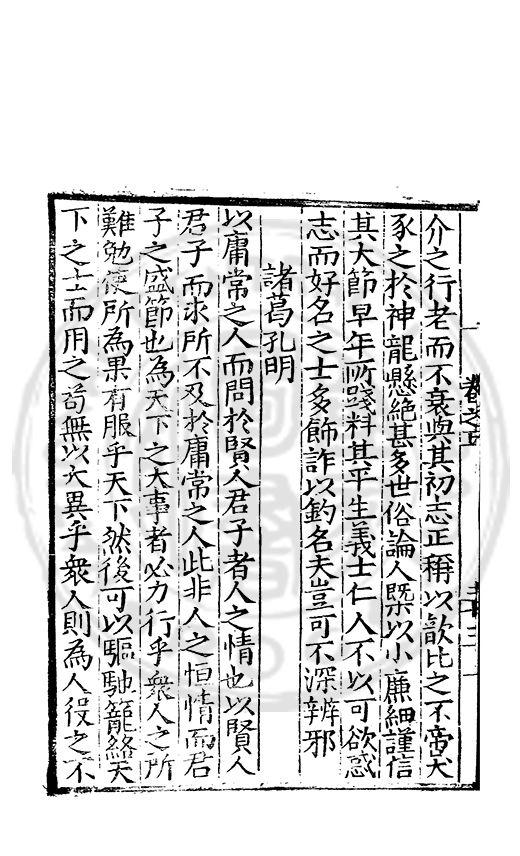 介之行老而不衰與其初志正稱以歆比之不啻犬
豕之於神龍懸絶甚多世俗論人槩以小亷細謹信
其大節早年所踐料其平生義士仁人不以可欲惑
志而好名之士多飾詐以釣名夫豈可不深辨邪
諸葛孔明
以庸常之人而問於賢人君子者人之情也以賢人
君子而求所不及於庸常之人此非人之恒情而君
子之盛節也為天下之大事者必力行乎衆人之所
難勉使所為果有服乎天下然後可以驅馳籠絡天
下之士而用之苟無以大異乎衆人則為人役之不
卷之五